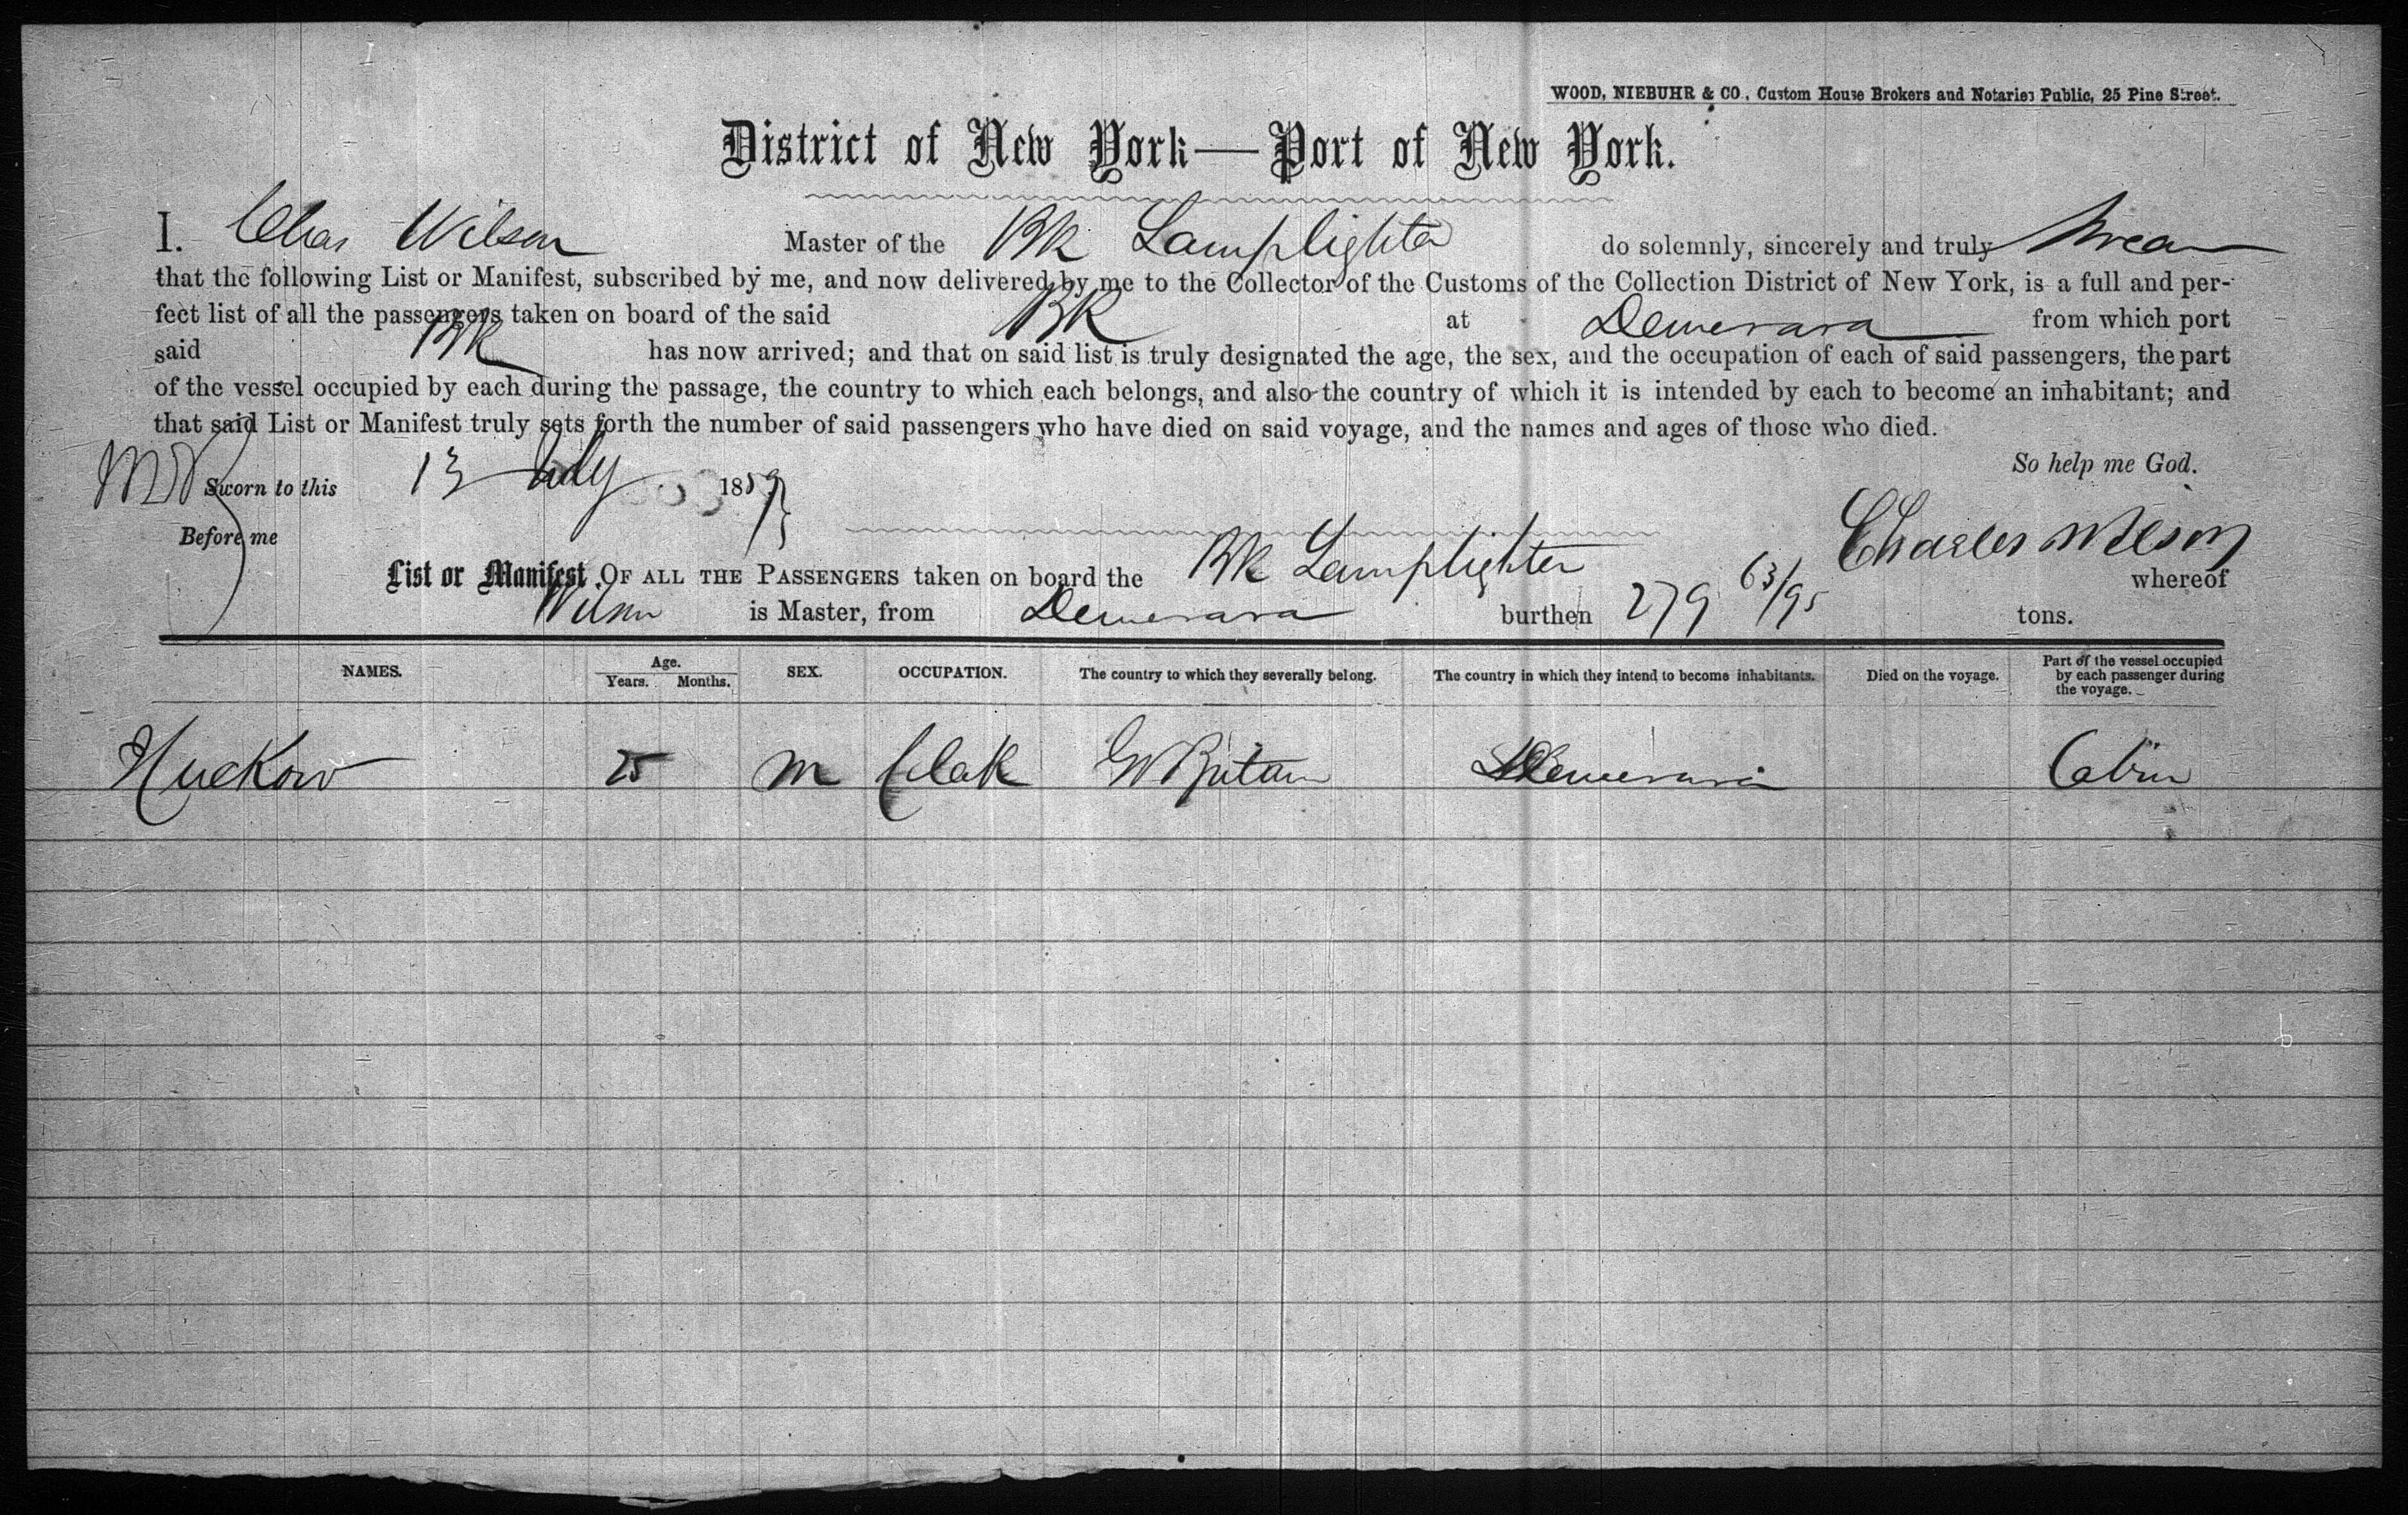 WOOD, NIEBUHR & CO., Custom House Brokers and Notaries Public, 25 Pine Street.
District of New York—Port of New York.
I. Chas Wilson Master of the Bk Lamplighter do solemnly, sincerely and truly Swear
that the following List or Manifest, subscribed by me, and now delivered by me to the Collector of the Customs of the Collection District of New York, is a full and per-
fect list of all the passengers taken on board of the said BK at Demerara from which port
said BK has now arrived; and that on said list is truly designated the age, the sex, and the occupation of each of said passengers, the part
of the vessel occupied by each during the passage, the country to which each belongs, and also the country of which it is intended by each to become an inhabitant; and
that said List or Manifest truly sets forth the number of said passengers who have died on said voyage, and the names and ages of those who died.
So help me God.
Sworn to this 13 July 1859
Before me Charles Wilson
List or Manifest OF ALL THE PASSENGERS taken on board the Bk Lamplighter whereof
Wilson is Master, from Demerara burthen 279 63/95 tons.
NAMES. Age. Years. Months. SEX. OCCUPATION. The country to which they severally belong. The country in which they intend to become inhabitants. Died on the voyage. Part of the vessel occupied by each passenger during the voyage.
25 M Clerk Gt Britain Demerara Cabin